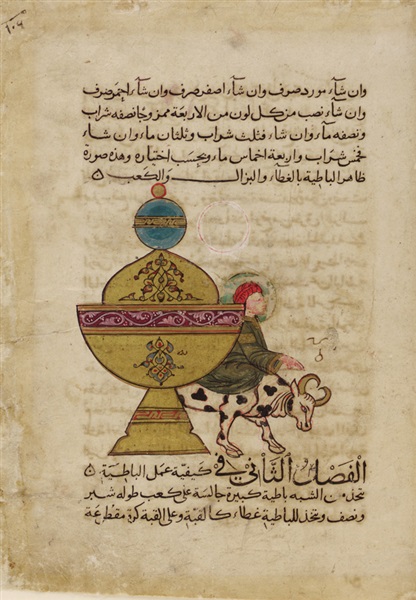 ١٠٦
وان شآء مورد صرف وان شآء اصفر صرف وان شآء احمر صرف
وان شاء نصب من كل لون من الاربعة ممزوجا نصفه شراب
ونصفه مآء وان شاء فثلث شراب وثلثان ماء وان شاء
فخمس شراب واربعة اخماس ماء وبحسب اختياره وهذه صورة
ظاهر الباطية بالغطاء والبزال والكعب
الفصل الثاني في كيفية عمل الباطية
يتخذ من الشبه باطية كبيرة جالسة على كعب طوله شبر
ونصف ويتخذ للباطية غطاء كالقبة وعلى القبة كرة مقطعة